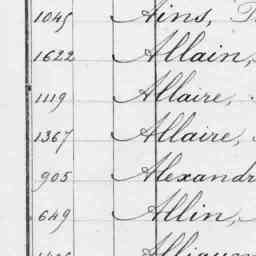 1045 Ains,
1622 Allain,
1119 Allaire,
1367 Allaire,
905 Alexandr
649 Allin,